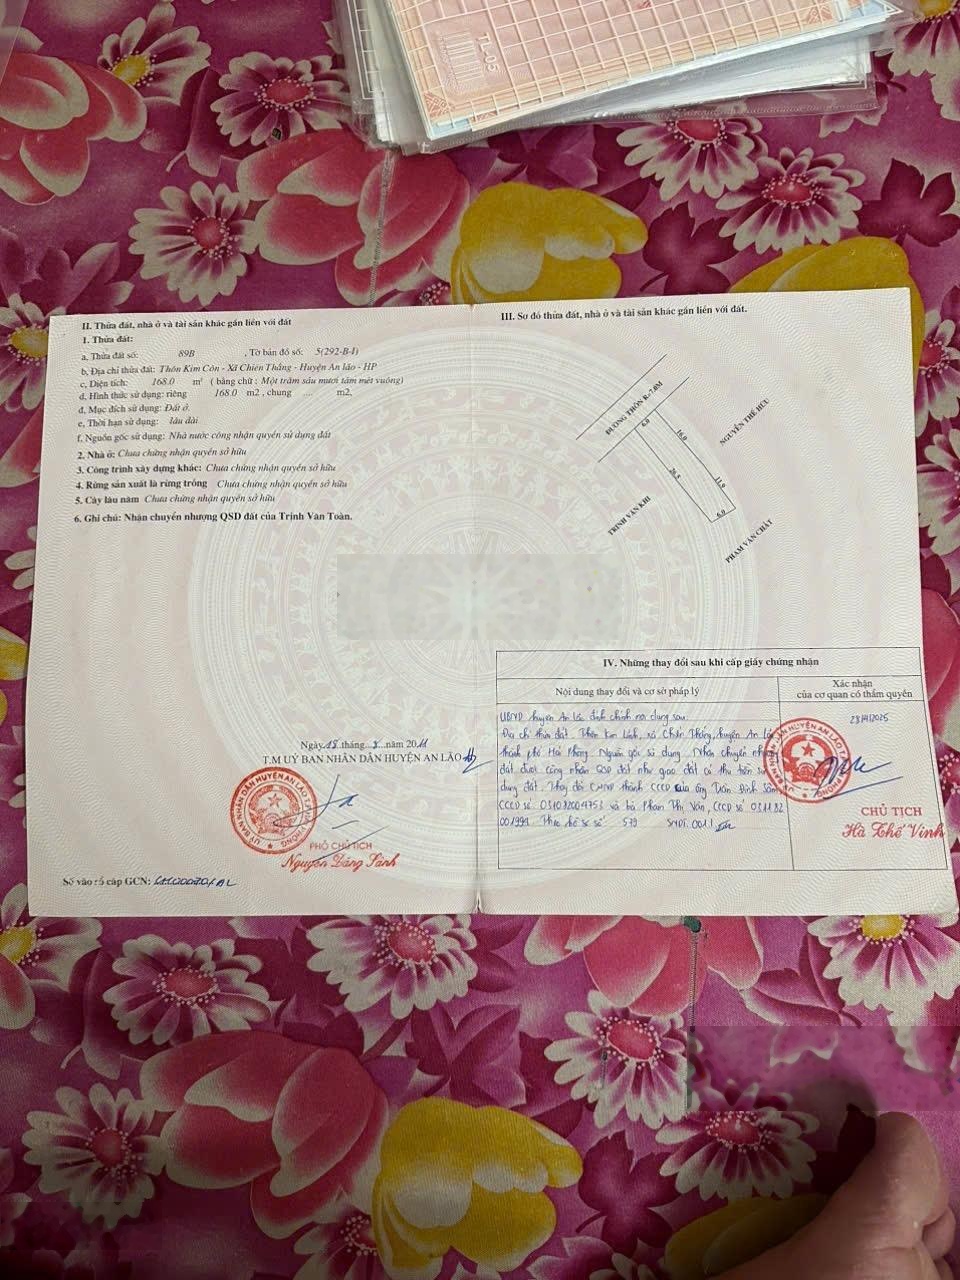 TL-05
II. Thửa đất, nhà ở và tài sản khác gắn liền với đất
1. Thửa đất:
a, Thửa đất số: 89B , Tờ bản đồ số: 5(292-B-I)
b, Địa chỉ thửa đất: Thôn Kim Côn - Xã Chiến Thắng - Huyện An lão - HP
c, Diện tích: 168.0 m² ( bằng chữ : Một trăm sáu mươi tám mét vuông)
d, Hình thức sử dụng: riêng 168.0 m2 , chung .... m2,
đ, Mục đích sử dụng: Đất ở.
e, Thời hạn sử dụng: lâu dài
f, Nguồn gốc sử dụng: Nhà nước công nhận quyền sử dụng đất
2. Nhà ở: Chưa chứng nhận quyền sở hữu
3. Công trình xây dựng khác: Chưa chứng nhận quyền sở hữu
4. Rừng sản xuất là rừng trồng Chưa chứng nhận quyền sở hữu
5. Cây lâu năm Chưa chứng nhận quyền sở hữu
6. Ghi chú: Nhận chuyển nhượng QSD đất của Trịnh Văn Toàn.
Ngày 18 tháng 8 năm 2011
T.M UỶ BAN NHÂN DÂN HUYỆN AN LÃO
PHÓ CHỦ TỊCH
Nguyễn Đăng Sánh
Số vào sổ cấp GCN:
III. Sơ đồ thửa đất, nhà ở và tài sản khác gắn liền với đất.
ĐƯỜNG THÔN R=7.0M
NGUYỄN THẾ HƯU
6.0
16.0
26.5
11.9
6.0
TRỊNH VĂN KHI
PHẠM VĂN CHẤT
IV. Những thay đổi sau khi cấp giấy chứng nhận
Nội dung thay đổi và cơ sở pháp lý
Xác nhận của cơ quan có thẩm quyền
UBND huyện An Lão đính chính nội dung sau:
Địa chỉ thửa đất: Thôn Kim Lĩnh, xã Chiến Thắng, huyện An Lão
thành phố Hải Phòng. Nguồn gốc sử dụng: Nhận chuyển nhượng
đất được công nhận QSD đất như giao đất có thu tiền sử
dụng đất. Thay đổi CMND thành CCCD của ông Trần Đình Sâm
CCCD số 031082004753 và bà Phạm Thị Vân, CCCD số 031182
001991. Theo hồ sơ số 579
23/4/2025
CHỦ TỊCH
Hà Thế Vinh